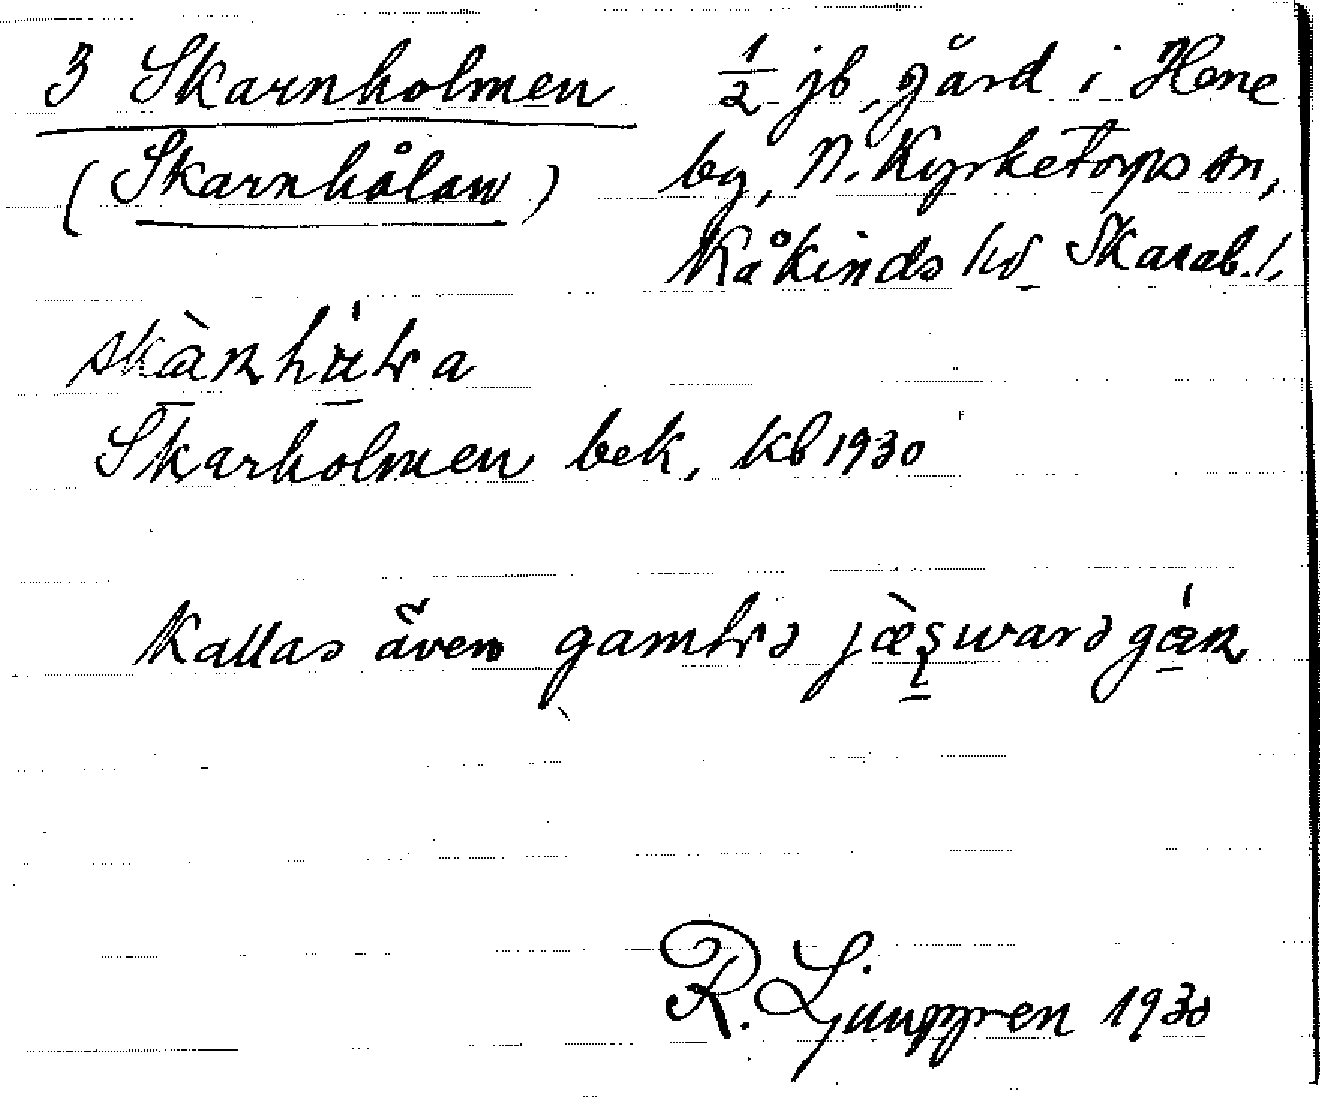 3 Skarnholmen
½ jb. gård i Hene
(Skarnhålan)
by, N. Kyrketorps sn,
Kåkinds hd Skarab. l.
Skarholmen bek. kb 1930
Kallas även
R. Ljunggren 1930